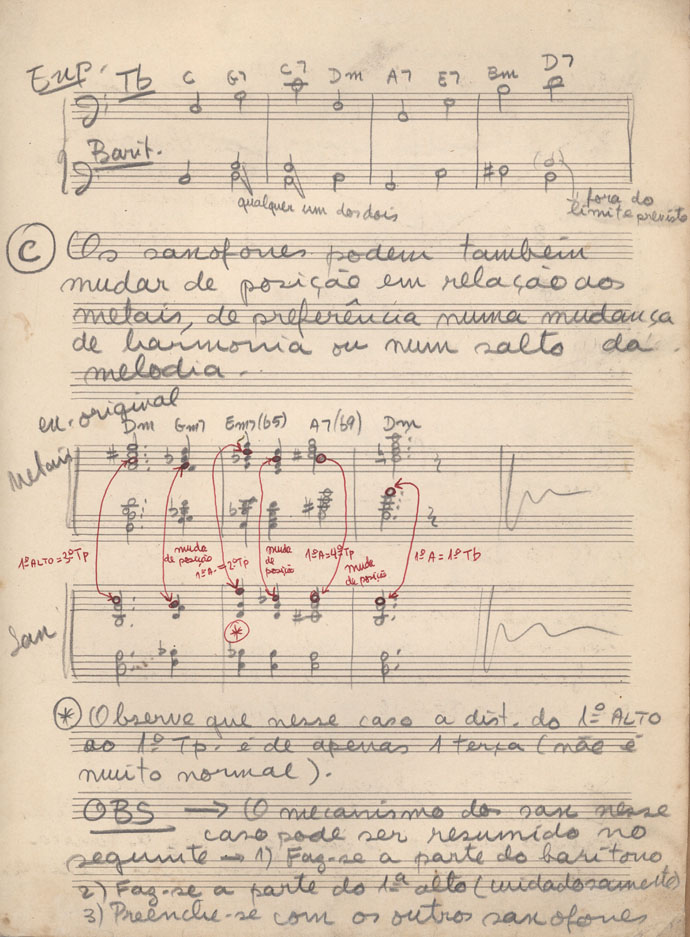 Enf. Tb C G7 C7 Dm A7 E7 Bm D7
Barit.
qualquer um dos dois
fora do
limite previsto
C Os saxofones podem também
mudar de posição em relação aos
metais, de preferência numa mudança
de harmonia ou num salto da
melodia.
ex. original
Dm Gm7 Em7(b5) A7(b9) Dm
Metais
1º ALTO = 3º Tp
muda
de posição
1º A. = 2º Tp
muda
de
posição
1º A = 4º Tp
muda
de posição
1º A = 1º Tb
Sax
*
* Observe que nesse caso a dist. do 1º ALTO
ao 1º Tp. é de apenas 1 terça (não é
muito normal).
OBS → O mecanismo dos sax nesse
caso pode ser resumido no
seguinte → 1) Faz-se a parte do barítono
2) Faz-se a parte do 1º alto (cuidadosamente)
3) Preenche-se com os outros saxofones